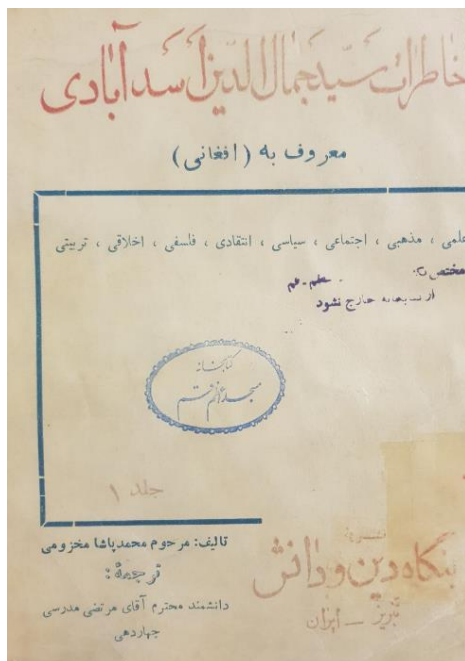 خاطرات سیّد جمال الدّین اسدآبادی
معروف به (افغانی)
علمی ، مذهبی ، اجتماعی ، سیاسی ، انتقادی ، فلسفی ، اخلاقی ، تربیتی
مختص
از خارج نشود
کتابخانه
مسجد اعظم قم
جلد ۱
تالیف: مرحوم محمدپاشا مخزومی
ترجمهٔ:
دانشمند محترم آقای مرتضی مدرسی
چهاردهی
بنگاه دین و دانش
تبریز – ایران